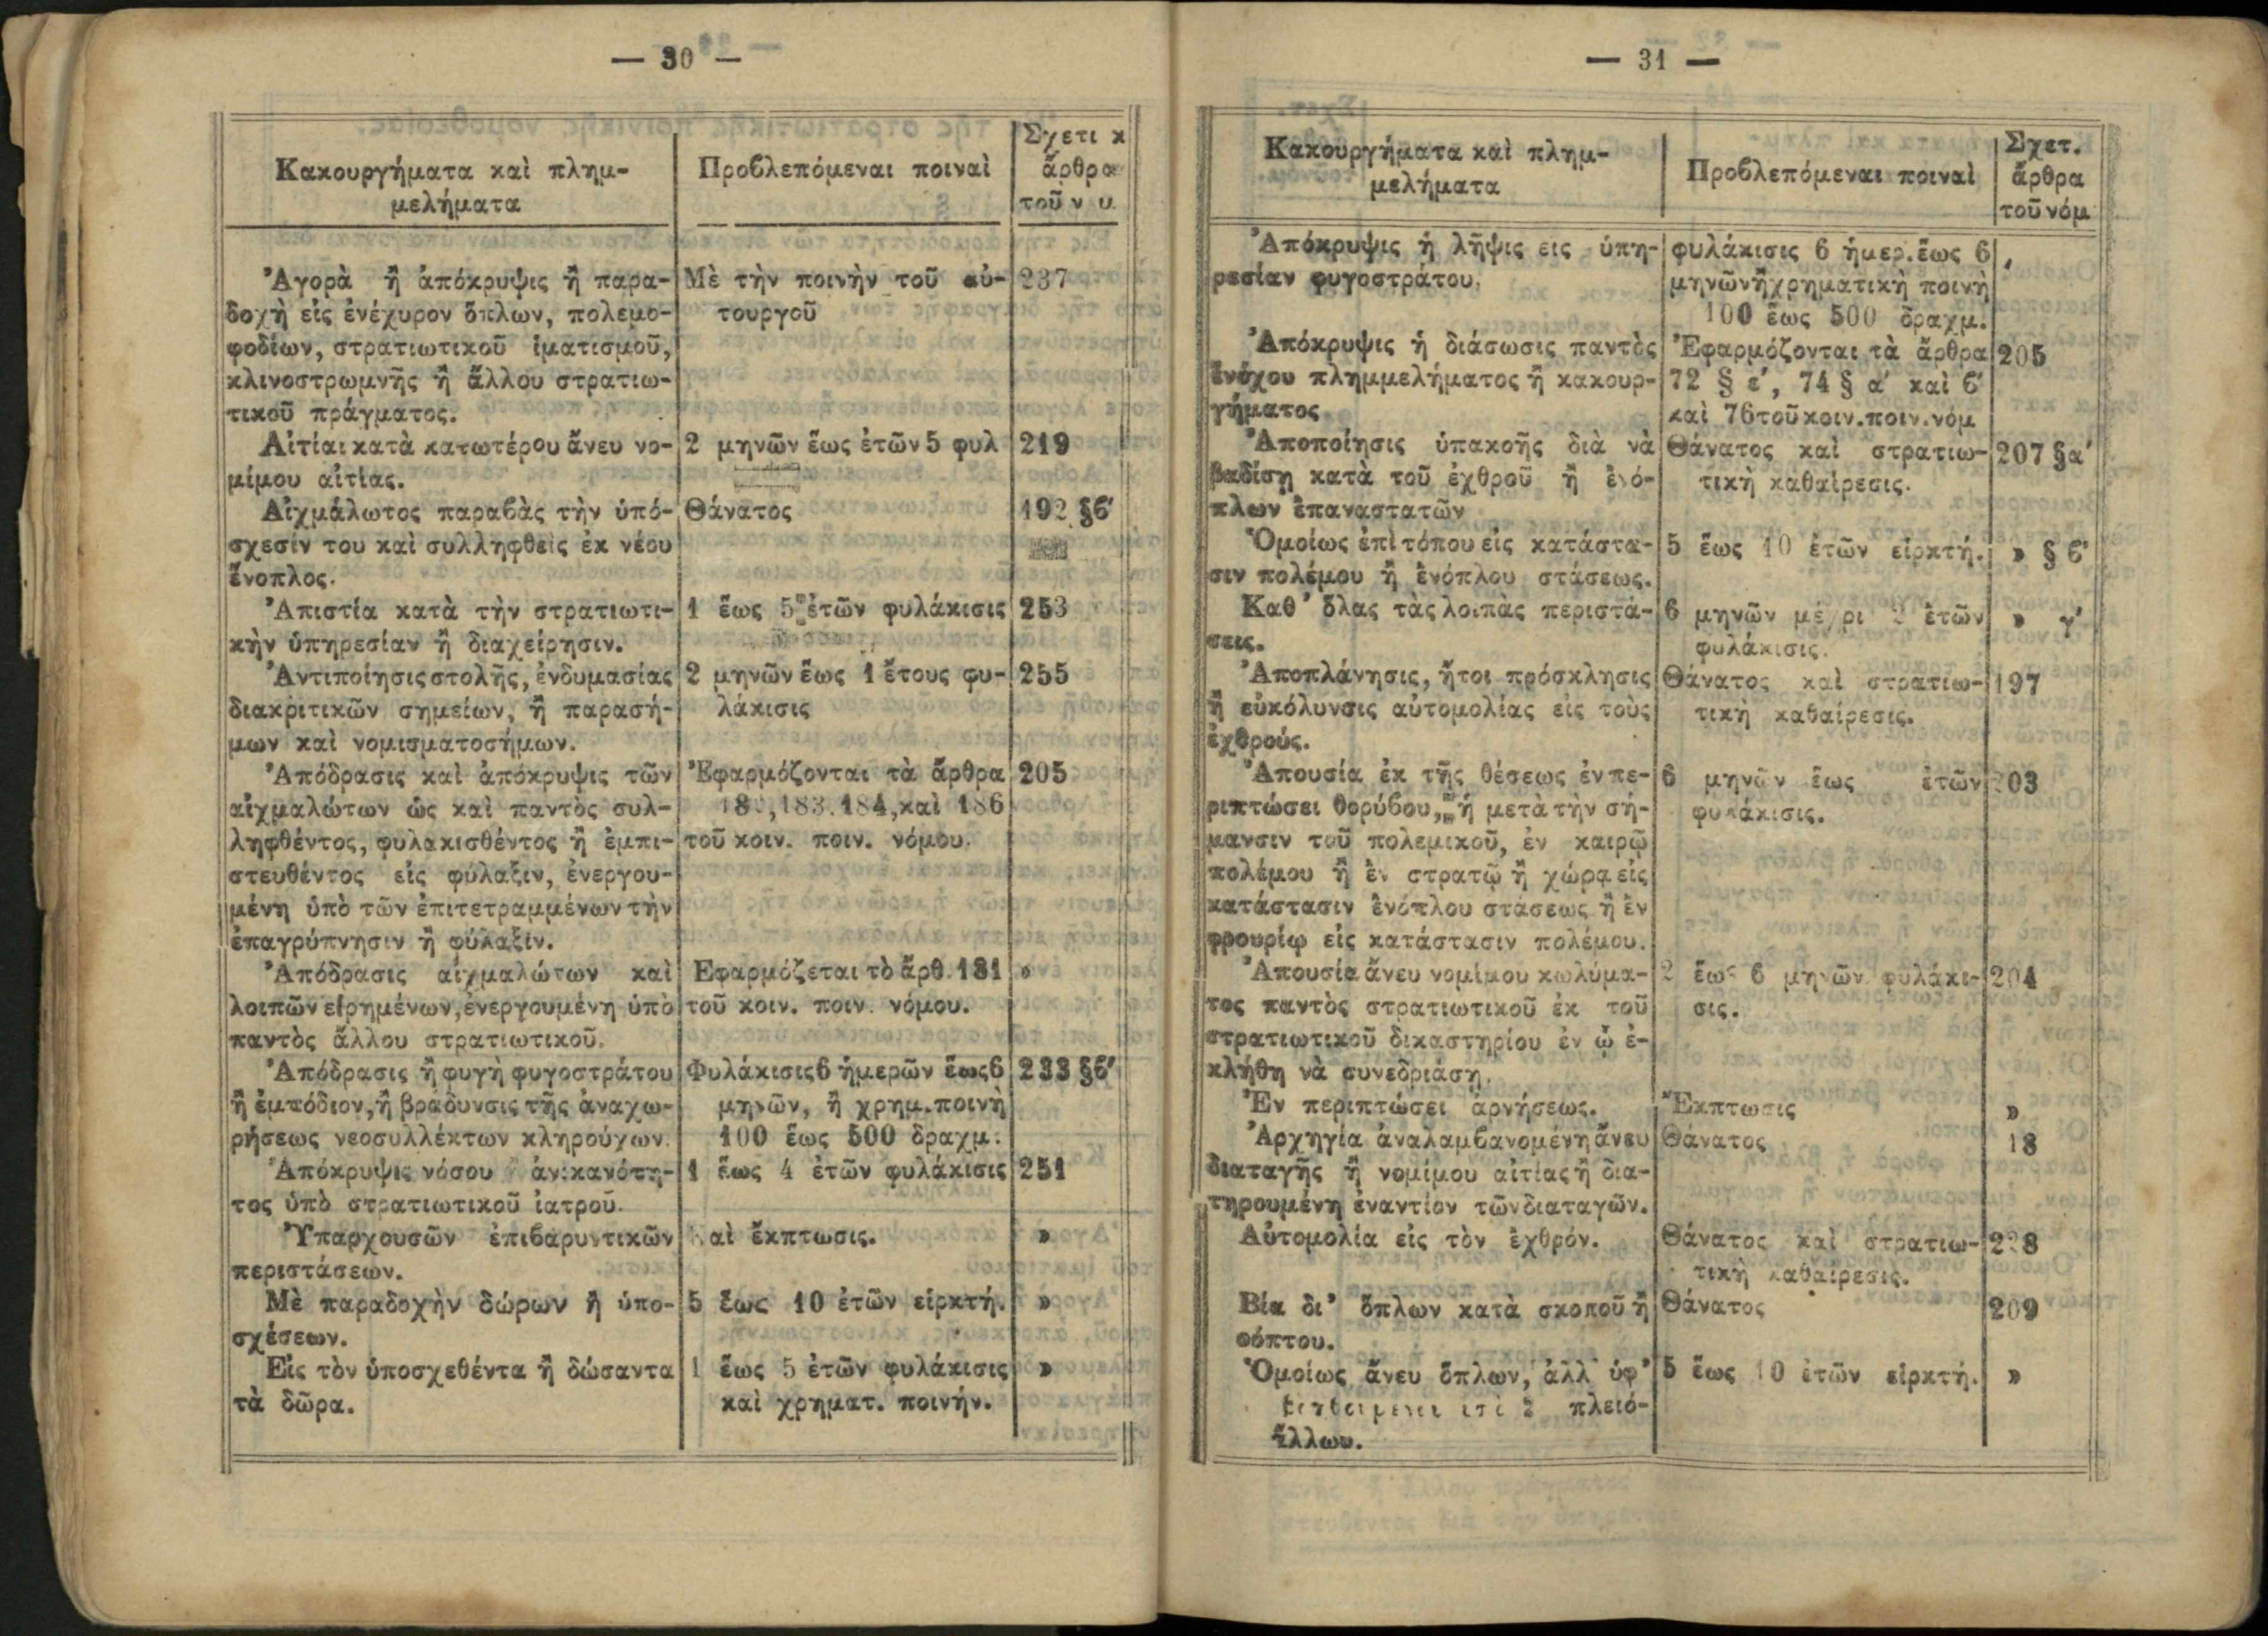 — 30 —
Κακουργήματα καὶ πλημ-
μελήματα
Προβλεπόμεναι ποιναὶ
Σχετι κ
ἄρθρα
τοῦ ν
Ἀγορὰ ἢ ἀπόκρυψις ἢ παρα- Μὲ τὴν ποινὴν τοῦ αὐ- 237
δοχὴ εἰς ἐνέχυρον ὅπλων, πολεμο- τουργοῦ
φοδίων, στρατιωτικοῦ ἱματισμοῦ,
κλινοστρωμνῆς ἢ ἄλλου στρατιω-
τικοῦ πράγματος.
Αἰτίαι κατὰ κατωτέρου ἄνευ νο- 2 μηνῶν ἕως ἐτῶν 5 φυλ 219
μίμου αἰτίας.
Αἰχμάλωτος παραβὰς τὴν ὑπό- Θάνατος 192 §β′
σχεσίν του καὶ συλληφθεὶς ἐκ νέου
ἔνοπλος.
Ἀπιστία κατὰ τὴν στρατιωτι- 1 ἕως 5 ἐτῶν φυλάκισις 253
κὴν ὑπηρεσίαν ἢ διαχείρησιν.
Ἀντιποίησις στολῆς, ἐνδυμασίας 2 μηνῶν ἕως 1 ἔτους φυ- 255
διακριτικῶν σημείων, ἢ παρασή- λάκισις
μων καὶ νομισματοσήμων.
Ἀπόδρασις καὶ ἀπόκρυψις τῶν Ἐφαρμόζονται τὰ ἄρθρα 205
αἰχμαλώτων ὡς καὶ παντὸς συλ- 183. 184, καὶ 186
ληφθέντος, φυλακισθέντος ἢ ἐμπι- τοῦ κοιν. ποιν. νόμου.
στευθέντος εἰς φύλαξιν, ἐνεργου-
μένη ὑπὸ τῶν ἐπιτετραμμένων τὴν
ἐπαγρύπνησιν ἢ φύλαξιν.
Ἀπόδρασις αἰχμαλώτων καὶ Ἐφαρμόζεται τὸ ἄρθ. 181 »
λοιπῶν εἰρημένων, ἐνεργουμένη ὑπὸ τοῦ κοιν. ποιν. νόμου.
παντὸς ἄλλου στρατιωτικοῦ.
Ἀπόδρασις ἢ φυγὴ φυγοστράτου Φυλάκισις 6 ἡμερῶν ἕως 6 233 §β′
ἢ ἐμπόδιον, ἢ βράδυνσις τῆς ἀναχω- μηνῶν, ἢ χρημ. ποινὴ
ρήσεως νεοσυλλέκτων κληρούχων. 100 ἕως 500 δραχμ.
Ἀπόκρυψις νόσου ἢ ἀνικανότη- 1 ἕως 4 ἐτῶν φυλάκισις 251
τος ὑπὸ στρατιωτικοῦ ἰατροῦ.
Ὑπαρχουσῶν ἐπιβαρυντικῶν Καὶ ἔκπτωσις. »
περιστάσεων.
Μὲ παραδοχὴν δώρων ἢ ὑπο- 5 ἕως 10 ἐτῶν εἱρκτή. »
σχέσεων.
Εἰς τὸν ὑποσχεθέντα ἢ δώσαντα 1 ἕως 5 ἐτῶν φυλάκισις »
τὰ δῶρα. καὶ χρηματ. ποινήν.
— 31 —
Κακουργήματα καὶ πλημ-
μελήματα
Προβλεπόμεναι ποιναὶ
Σχετ.
ἄρθρα
τοῦ νόμ
Ἀπόκρυψις ἡ λῆψις εἰς ὑπη- φυλάκισις 6 ἡμερ. ἕως 6
ρεσίαν φυγοστράτου. μηνῶν ἢ χρηματικὴ ποινὴ
100 ἕως 500 δραχμ.
Ἀπόκρυψις ἡ διάσωσις παντὸς Ἐφαρμόζονται τὰ ἄρθρα 205
ἐνόχου πλημμελήματος ἢ κακουρ- 72 § ε′, 74 § α′ καὶ β′
γήματος καὶ 76 τοῦ κοιν. ποιν. νόμ
Ἀποποίησις ὑπακοῆς διὰ νὰ Θάνατος καὶ στρατιω- 207 §α′
βαδίσῃ κατὰ τοῦ ἐχθροῦ ἢ ἐνό- τικὴ καθαίρεσις.
πλων ἐπαναστατῶν
Ὁμοίως ἐπὶ τόπου εἰς κατάστα- 5 ἕως 10 ἐτῶν εἱρκτή. » § β′
σιν πολέμου ἢ ἐνόπλου στάσεως.
Καθ' ὅλας τὰς λοιπὰς περιστά- 6 μηνῶν μέχρι 2 ἐτῶν » γ′
σεις. φυλάκισις.
Ἀποπλάνησις, ἤτοι πρόσκλησις Θάνατος καὶ στρατιω- 197
ἢ εὐκόλυνσις αὐτομολίας εἰς τοὺς τικὴ καθαίρεσις.
ἐχθρούς.
Ἀπουσία ἐκ τῆς θέσεως ἐν πε- 6 μηνῶν ἕως ἐτῶν 203
ριπτώσει θορύβου, ἡ μετὰ τὴν σή- φυλάκισις.
μανσιν τοῦ πολεμικοῦ, ἐν καιρῷ
πολέμου ἢ ἐν στρατῷ ἢ χώρᾳ εἰς
κατάστασιν ἐνόπλου στάσεως ἢ ἐν
φρουρίῳ εἰς κατάστασιν πολέμου.
Ἀπουσία ἄνευ νομίμου κωλύμα- 2 ἕως 6 μηνῶν φυλάκι- 204
τος παντὸς στρατιωτικοῦ ἐκ τοῦ σις.
στρατιωτικοῦ δικαστηρίου ἐν ᾧ ἐ-
κλήθη νὰ συνεδριάσῃ.
Ἐν περιπτώσει ἀρνήσεως. Ἔκπτωσις »
Ἀρχηγία ἀναλαμβανομένη ἄνευ Θάνατος 18
διαταγῆς ἢ νομίμου αἰτίας ἢ δια-
τηρουμένη ἐναντίον τῶν διαταγῶν.
Αὐτομολία εἰς τὸν ἐχθρόν. Θάνατος καὶ στρατιω- 228
τικὴ καθαίρεσις.
Βία δι' ὅπλων κατὰ σκοποῦ ἢ Θάνατος 209
όπτου.
Ὁμοίως ἄνευ ὅπλων, ἀλλ' ὑφ' 5 ἕως 10 ἐτῶν εἱρκτή. »
2 πλειό-
ἄλλων.